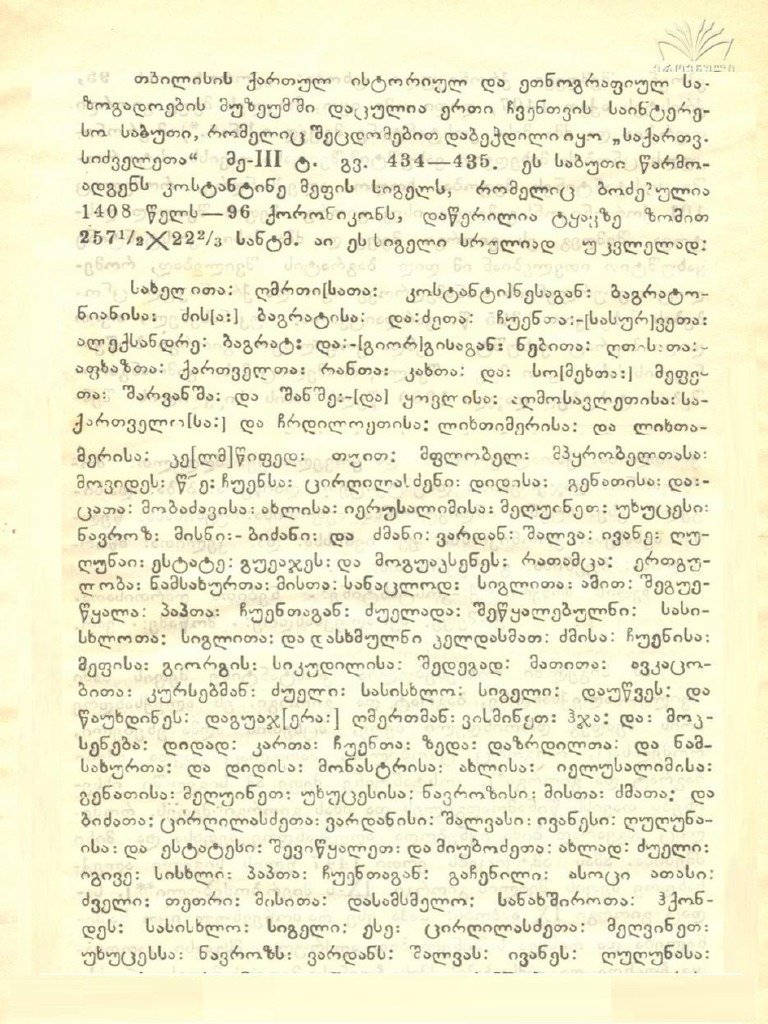 ეროვნული
თბილისის ქართულ ისტორიულ და ეთნოგრაფიულ სა-
ზოგადოების მუზეუმში დაცულია ერთი ჩვენთვის საინტერე-
სო საბუთი, რომელიც შეცდომებით დაბეჭდილი იყო „საქართვ.
სიძველეთა“ მე-III ტ. გვ. 434—435. ეს საბუთი წარმო-
ადგენს კოსტანტინე მეფის სიგელს, რომელიც ბოძებულია
1408 წელს—96 ქორონიკონს, დაწერილია ტყავზე ზომით
257¹/₂✕22²/₃ სანტმ. აი ეს სიგელი სრულიად უცვლელად:
სახელითა: ღმრთი[სათა: კოსტანტი]ნესაგან: ბაგრატო-
ნიანისა: ძის[ა:] ბაგრატისა: და:ძეთა: ჩუენთა:-[სასურ]ვეთა:
ალექსანდრე: ბაგრატ: და:-[გიორ]გისაგან: ნებითა: ღთისათა:-
აფხაზთა: ქართველთა: რანთა: კახთა: და: სო[მეხთა:] მეფე-
თა: შარვანშა: და შანშე:-[და] ყოვლისა: აღმოსავლეთისა: სა-
ქართველო[სა:] და ჩრდილოეთისა: ლიხთიმერისა: და ლიხთა-
მერისა: კე[ლმ]წიფედ: თვით: მფლობელ: მპყრობელთასა:
მოვიდეს: წ~ე: ჩუენსა: ცირღილასძენი: დიდისა: გენათისა: და:-
ცათა: მობაძავისა: ახლისა: იერუსალიმისა: მეღუინეთ: უხუცესი:
ნავროზ: მისნი:- ბიძანი: და ძმანი: ვარდან: შალვა: ივანე: ღუ-
ღუნაი: ესტატე: გუეაჯეს: და მოგუაკსენეს: რათამცა: ერთგუ-
ლობა: ნამსახურთა: მისთა: სანაცლოდ: სიგლითა: ამით: შეგუე-
წყალა: პაპთა: ჩუენთაგან: ძუელადა: შეწყალებულნი: სასი-
სხლოთა: სიგლითა: და დასხმულნი კელდასმათ: ძმისა: ჩუენისა:
მეფისა: გიორგის: სიკუდილისა: შედეგად: მათითა: ავკაცო-
ბითა: კურსებმან: ძუელი: სასისხლო: სიგელი: დაუწვეს: და
წაუხდინეს: დაგუაჯ[ერა:] ღმერთმან: ვისმინეთ: ჰჯა: და: მოკ-
სენება: დიდად: კართა: ჩუენთა: ზედა: დაზრდილთა: და ნამ-
სახურთა: და დიდისა: მონასტრისა: ახლისა: იელუსალიმისა:
გენათისა: მეღუინეთ: უხუცესისა: ნავროზისი: მისთა: ძმათა: და
ბიძათა: ცირღილასძეთა: ვარდანისი: შალვასი: ივანესი: ღუღუნა-
ისა: და ესტატესი: შევიწყალეთ: და მიუბოძეთა: ახლად: ძუელი:
იგივე: სისხლი: პაპთა: ჩუენთაგან: გაჩენილი: ასოცი ათასი:
ძველი: თეთრი: მისითა: დასამსმელო: სანახშიროთა: ჰქონ-
დეს: სასისხლო: სიგელი: ესე: ცირღილასძეთა: მეღვინეთ:
უხუცესსა: ნავროზს: ვარდანს: შალვას: ივანეს: ღუღუნასა: